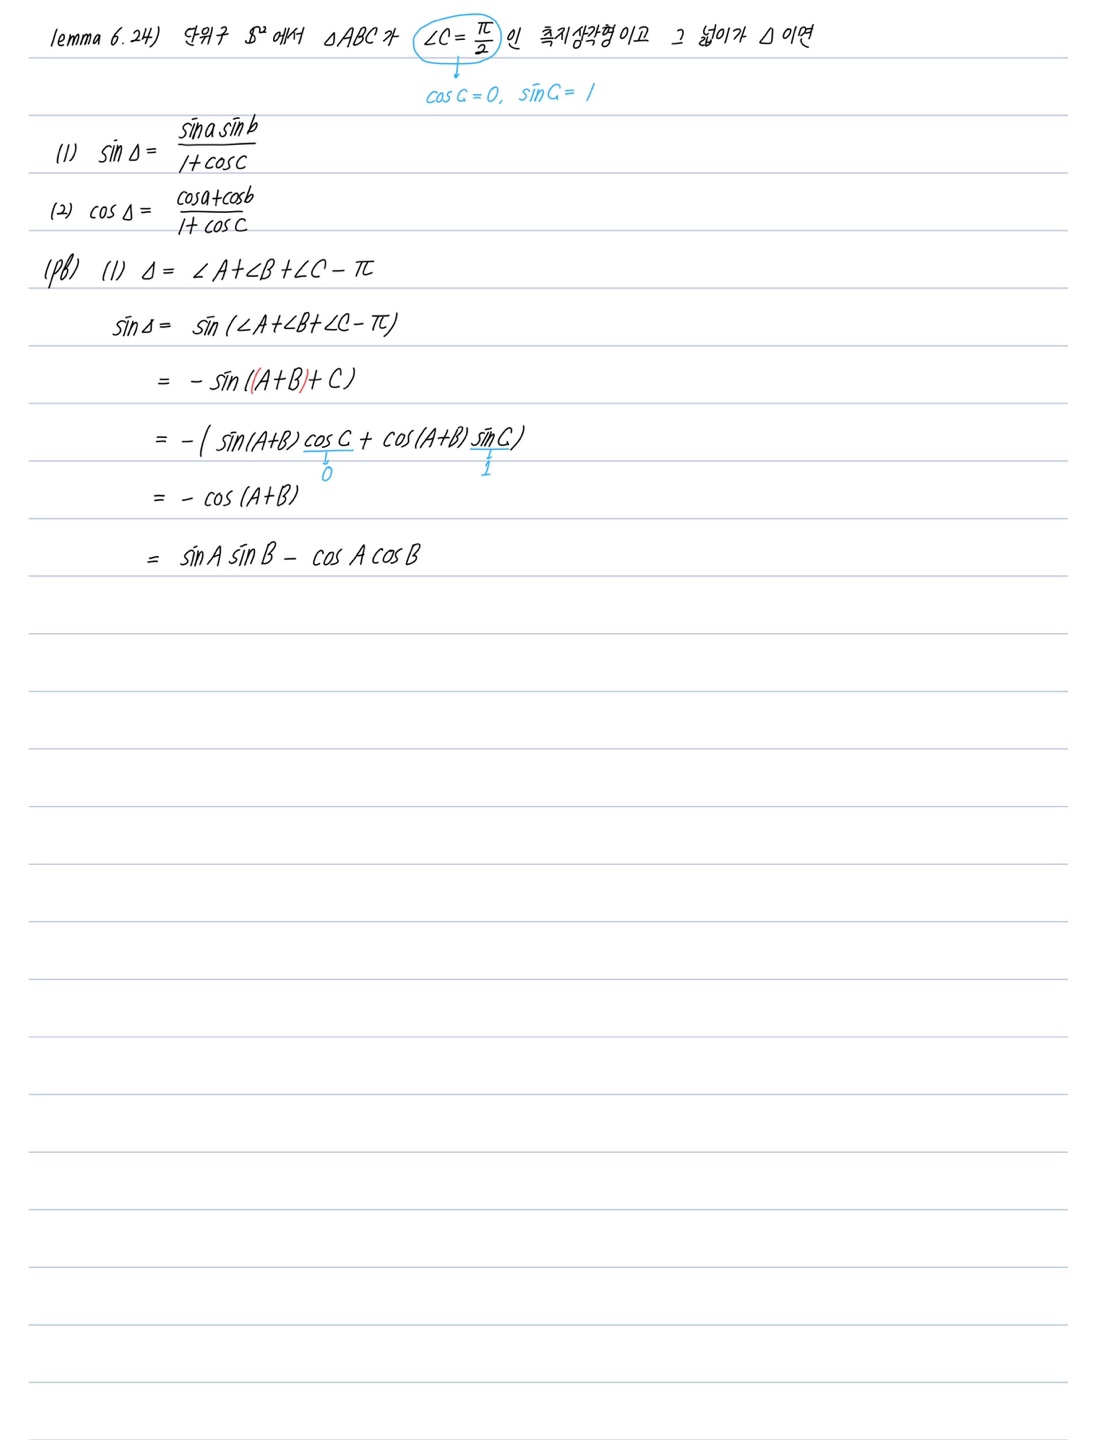 lemma 6.24) 단위구 S² 에서 △ABC가 ∠C = π/2 인 측지삼각형이고 그 넓이가 △ 이면
cos C = 0, sin C = 1
(1) sin △ = sin a sin b / 1 + cos C
(2) cos △ = cos a + cos b / 1 + cos C
(pf) (1) △ = ∠A + ∠B + ∠C − π
sin △ = sin (∠A + ∠B + ∠C − π)
= − sin ((A+B) + C)
= − ( sin (A+B) cos C + cos (A+B) sin C )
0 1
= − cos (A+B)
= sin A sin B − cos A cos B